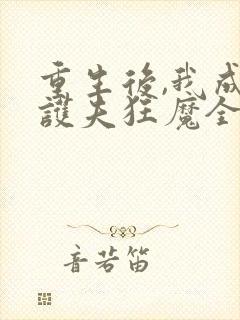 重生後,我成
護夫狂魔全
音若笛